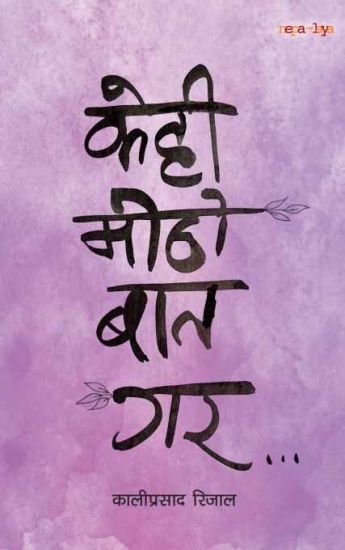 nepa-laya
केही
मीठो
बात
गर...
कालीप्रसाद रिजाल